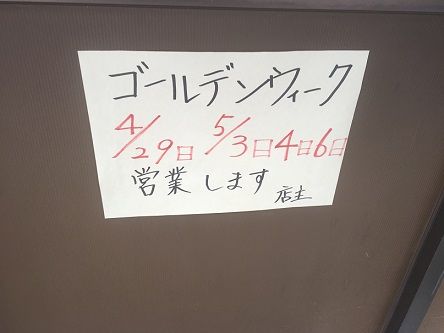 ゴールデンウィーク
4/29日 5/3日4日6日
営業します 店主